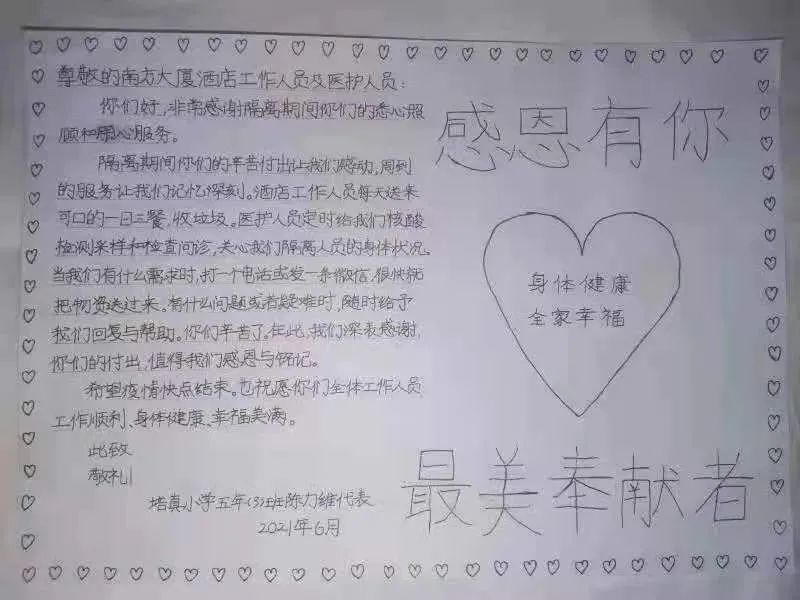 尊敬的南方大厦酒店工作人员及医护人员：
你们好，非常感谢隔离期间你们的悉心照
顾和暖心服务。
隔离期间你们的辛苦付出让我们感动，周到
的服务让我们记忆深刻。酒店工作人员每天送来
可口的一日三餐，收垃圾。医护人员定时给我们核酸
检测采样和检查问诊，关心我们隔离人员的身体状况。
当我们有什么需求时，打一个电话或发一条微信，很快就
把物资送过来。有什么问题或者疑难时，随时给予
我们回复与帮助。你们辛苦了。在此，我们深表感谢，
你们的付出，值得我们感恩与铭记。
希望疫情快点结束。也祝愿你们全体工作人员
工作顺利、身体健康、幸福美满。
此致
敬礼
培真小学五年(3)班陈力维代表
2021年6月
感恩有你
身体健康
全家幸福
最美奉献者